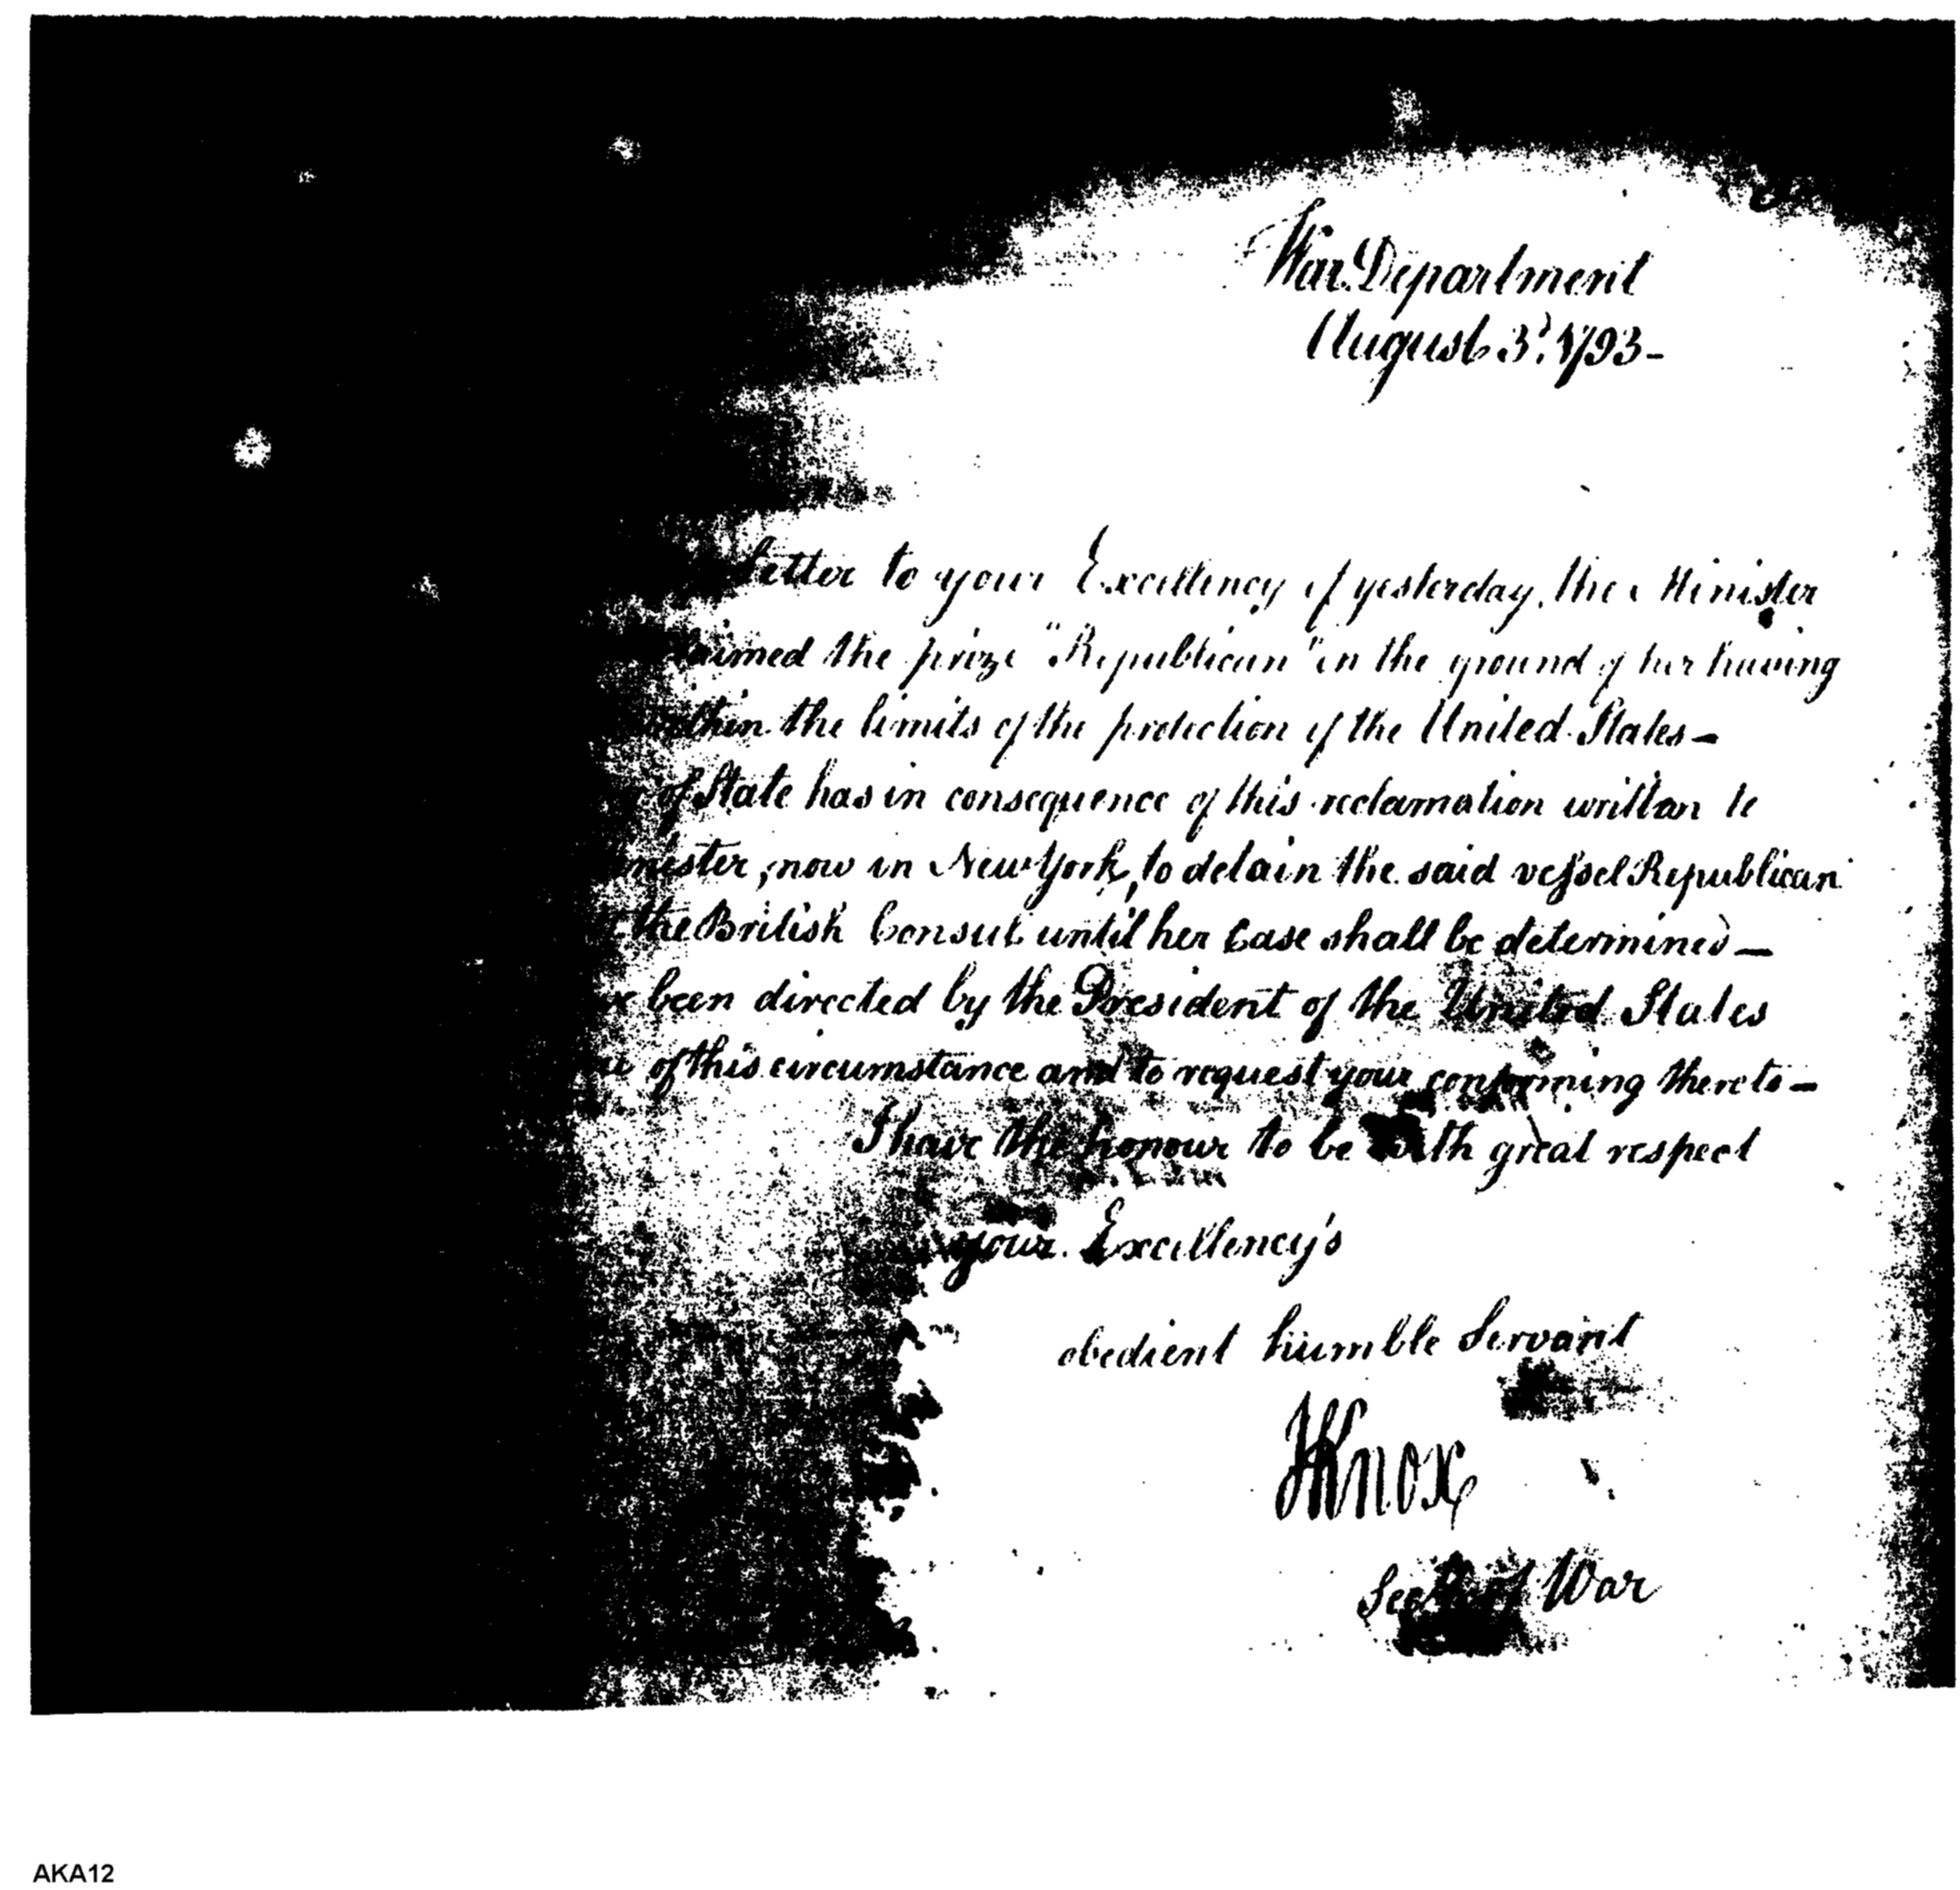 War Department
August 3d. 1793-
letter to your Excellency of yesterday, the Minister
the prize "Republican" on the ground of her having
the limits of the protection of the United States-
of State has in consequence of this reclamation written to
now in New York, to detain the said vessel Republican
the British Consul until her Case shall be determined-
been directed by the President of the United States
of this circumstance and to request your conforming thereto-
I have the honour to be with great respect
your Excellency's
obedient humble Servant
HKnox
Secy of War
AKA12